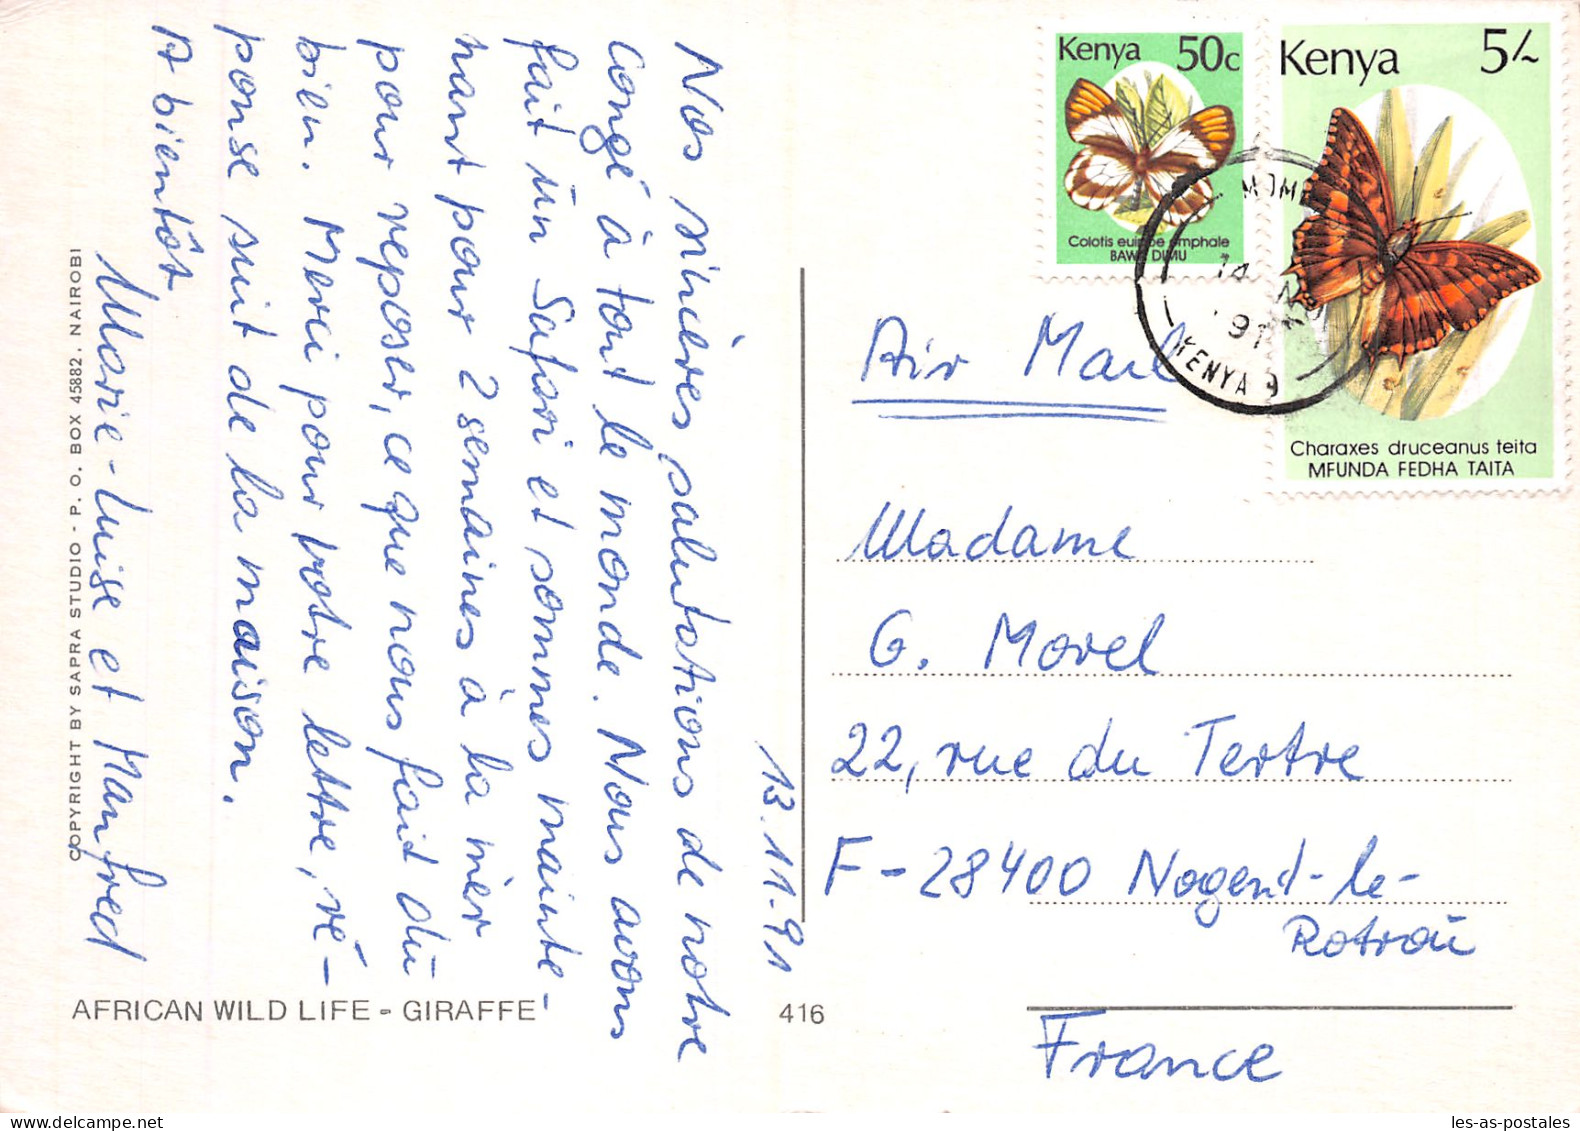 13.11.91
Nos sincères salutations de notre
congé à tout le monde. Nous avons
fait ün Safari et sommes mainte-
nant pour 2 semaines à la mèr
pour reposer, ce que nous fait dü
bien. Merci pour votre lettre, ré-
ponse suit de la maison.
A bientôt
Marie-Luise et Manfred
COPYRIGHT BY SAPRA STUDIO - P. O. BOX 45882, NAIROBI
AFRICAN WILD LIFE - GIRAFFE
416
Kenya 50c
Colotis euippe omphale
DIMU
Kenya 5/-
Charaxes druceanus teita
MFUNDA FEDHA TAITA
14
91
KENYA
Air Mail
Madame
G. Morel
22, rue du Tertre
F-28400 Nogent-le-
Rotroü
France
les-as-postales